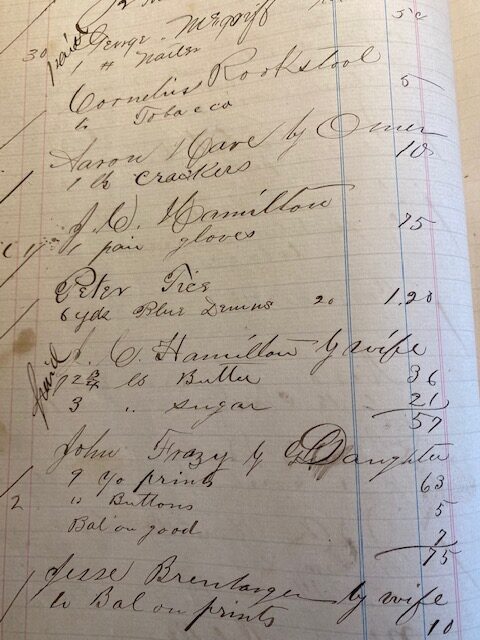 paid George
30 1 # Nailes 5c
Cornelius Rookstool
to Tobacco 5
Aaron Hare by Omer
1 lb Crackers 10
J. C. Hamilton
1 pair gloves 75
Peter Ties
6 yds Blue Denims 20 1.20
paid J. C. Hamilton by wife
lb Butter 36
3 " sugar 21
57
John Frazy by G. Daughter
9 yo prints 63
2 " Buttons 5
Bal on good 7
75
Jesse by wife
to Bal on prints 10